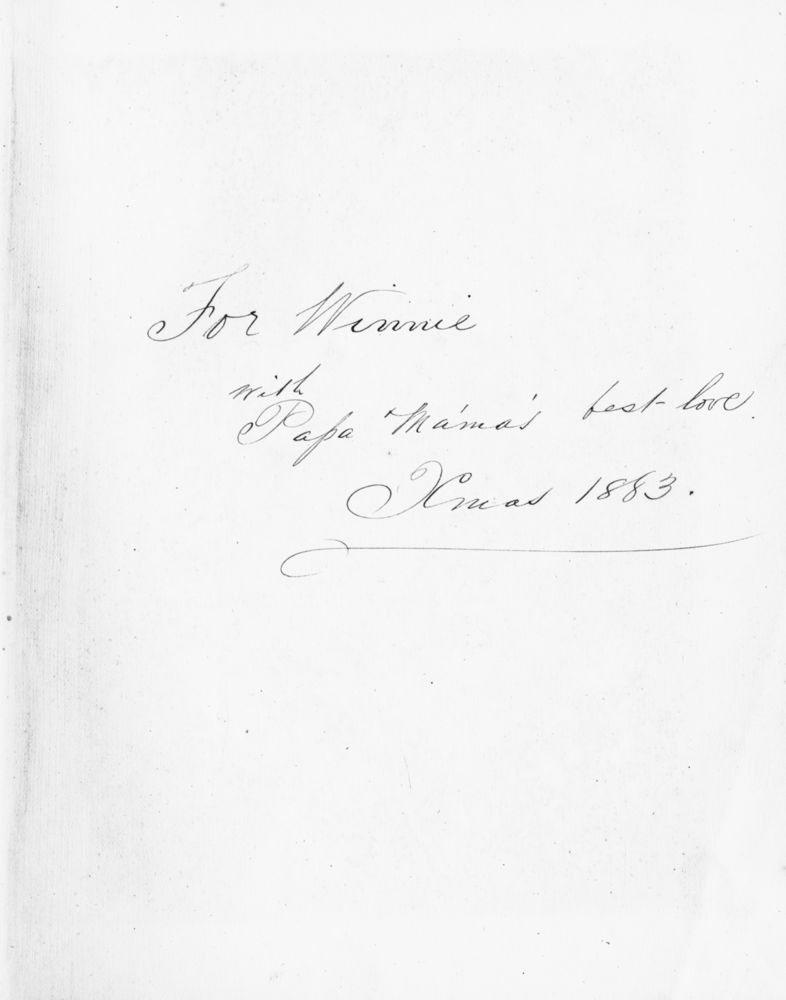 For Winnie
with
Papa Mama's best love.
Xmas 1883.